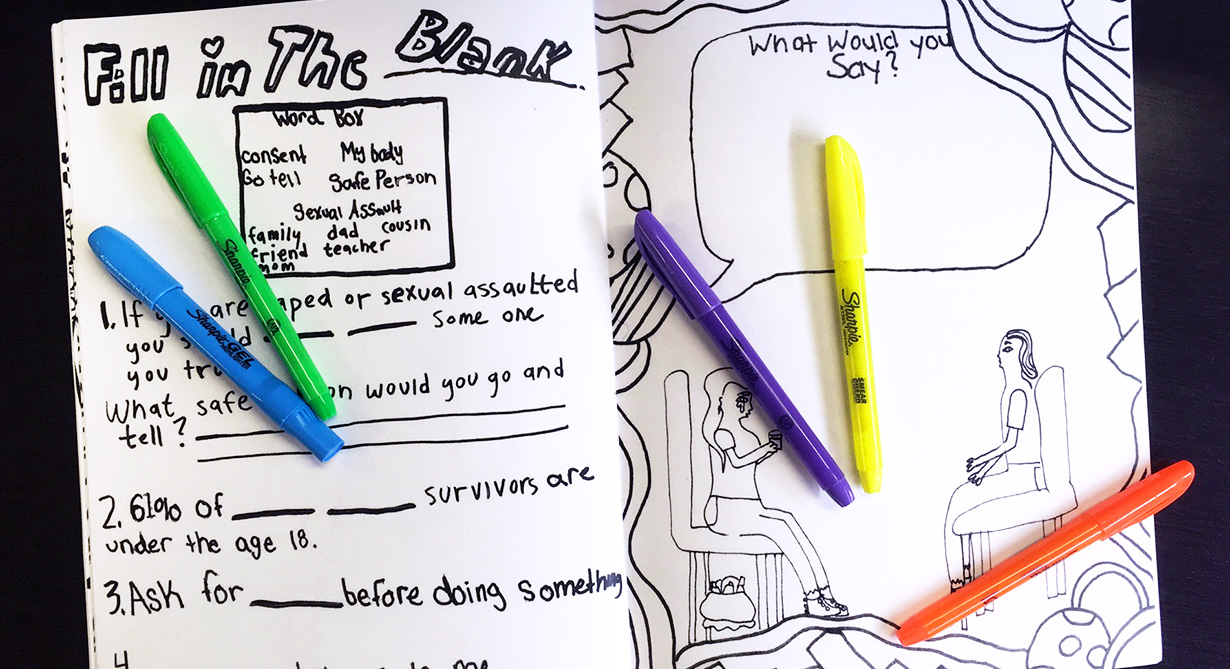 Fill in The Blank
Word Box
consent My body
Go tell Safe Person
Sexual Assault
family dad cousin
friend teacher
mom
1. If are or sexual assaulted
you ___ ___ some one
you
What safe would you go and
tell?
2. 61% of ___ ___ survivors are
under the age 18.
3. Ask for ___ before doing something
4.
to me
What would you
Say?
Sharpie
Sharpie GEL
Sharpie
Sharpie
SMEAR
GUARD